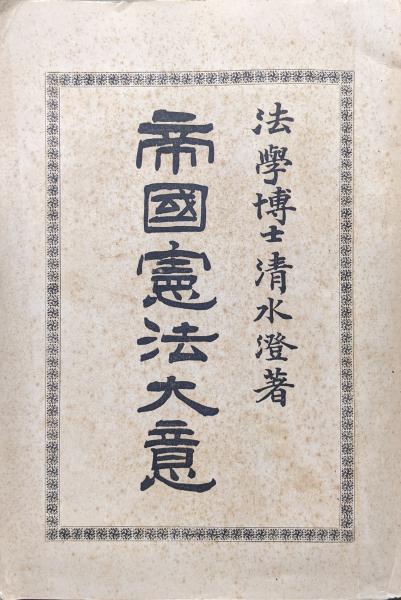 法學博士清水澄著
帝國憲法大意